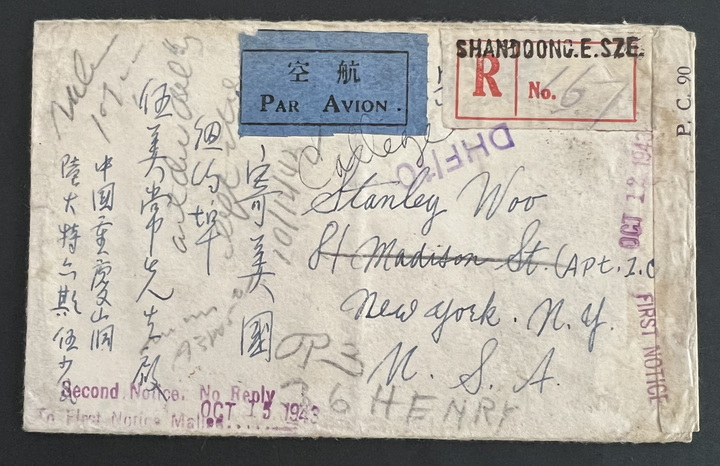 空航
PAR AVION.
SHANDOONG.E.SZE.
R
No. 167
P. C. 90
DHFLO
College
OCT 12 1943
FIRST NOTICE
Stanley Woo
81 Madison St. (APT. 1.C
New York. N.Y.
U. S. A.
寄美國
紐約埠
伍美常先生啟
中國重慶山洞
陸大特六期伍少
10/12/43
Second Notice. No Reply
To First Notice Mailed.......
OCT 15 1943
6 HENRY